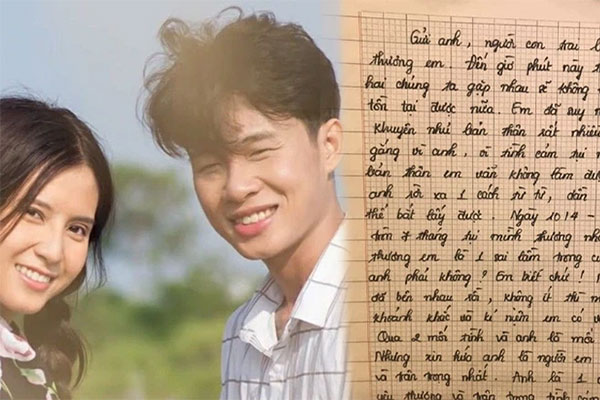 Gửi anh, người con trai
thương em. Đến giờ phút này
hai chúng ta gặp nhau sẽ không
tồn tại được nữa. Em đã suy
khuyên nhủ bản thân rất nhiều
gắng vì anh, vì tình cảm tụi
bản thân em vẫn không tìm được
anh rời xa 1 cách từ từ, dần
thể bắt lấy được. Ngày 10/4 -
tròn 7 tháng tụi mình thương
thương em là 1 sai lầm trong
anh phải không? Em biết chứ!
đó bên nhau rồi, không ít thì
khoảnh khắc và kỉ niệm em có
Qua 2 mối tình và anh là mối
Nhưng xin hứa anh là người em
và trân trọng nhất. Anh là 1
yêu thương và trân trọng tình cảm